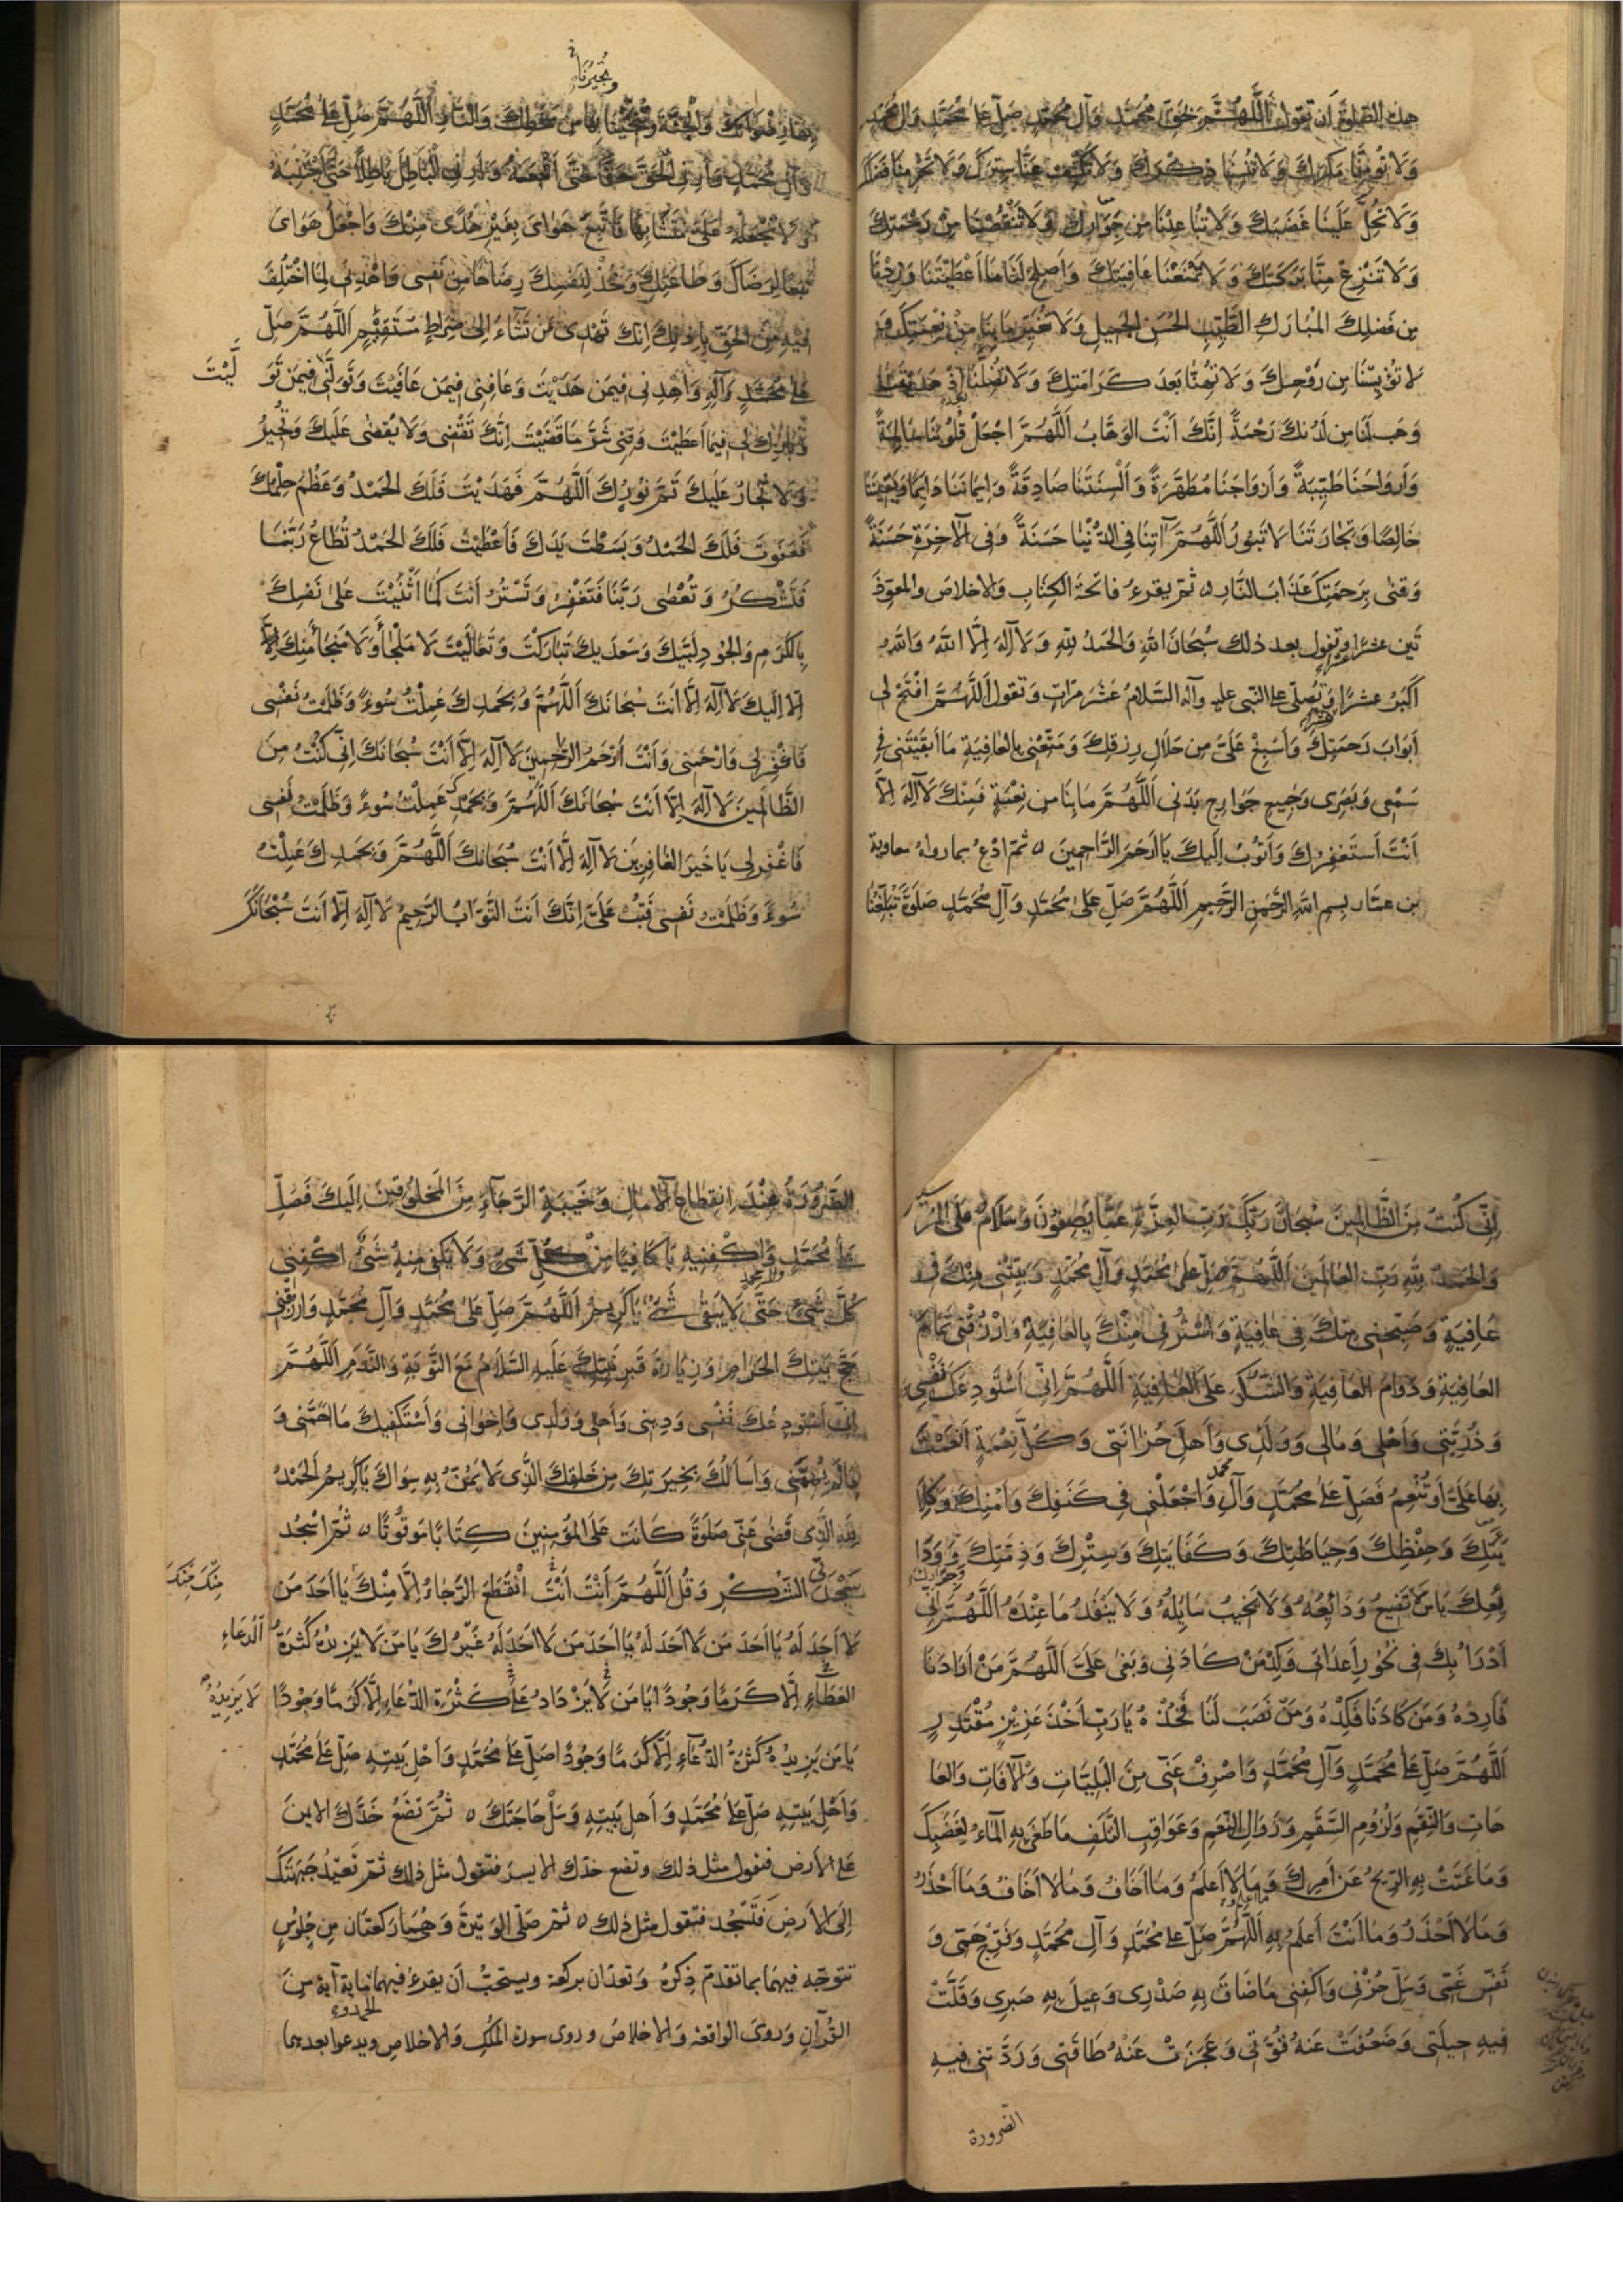 هذه الصلوة أن تقول اَللَّهُمَّ بِحَقِّ مُحَمَّدٍ وَآلِ مُحَمَّدٍ صَلِّ عَلى مُحَمَّدٍ وَآلِ مُحَمَّدٍ
وَلَا تُؤْمِنَّا مَكْرَكَ وَلَا تُنْسِنَا ذِكْرَكَ وَلَا تَكْشِفْ عَنَّا سِتْرَكَ وَلَا تَحْرِمْنَا فَضْلَكَ
وَلَا تُحِلَّ عَلَيْنَا غَضَبَكَ وَلَا تُبَاعِدْنَا مِن جِوَارِكَ وَلَا تَنْقُصْنَا مِنْ رَحْمَتِكَ
وَلَا تَنْزِعْ مِنَّا بَرَكَتَكَ وَلَا تَمْنَعْنَا عَافِيَتَكَ وَاَصلِحْ لَنَا مَا اَعْطَيْتَنَا وَزِدْنَا
مِن فَضلِكَ المُبَارَكِ الطَّيِّبِ الحَسَنِ الجَمِيلِ وَلَا تُغَيِّر مَا بِنَا مِنْ نِعْمَتِكَ وَ
لَا تُؤْيِسْنَا مِن رَوْحِكَ وَلَا تُهِنَّا بَعدَ كَرَامَتِكَ وَلَا تُضِلَّنَا بعد إذ هَدَيْتَنَا
وَهَب لَنَا مِن لَدُنكَ رَحْمَةً اِنَّكَ اَنْتَ الوَهَّابُ اَللَّهُمَّ اجْعَلْ قُلُوبَنَا سَالِمَةً
وَأَروَاحَنَا طَيِّبَةً وَأَزوَاجَنَا مُطَهَّرَةً وَاَلْسِنَتَنَا صَادِقَةً وَاِيمَانَنَا دَايِمًا وَيَقِينَنَا
خَالِصًا وَتِجَارَتَنَا لَا تَبُورُ اَللَّهُمَّ آتِنَا فِي الدُّنْيَا حَسَنَةً وَفِى الآخِرَةِ حَسَنَةً
وَقِنَا بِرَحمَتِكَ عَذَابَ النَّارِ ثمّ يقرءُ فاتحةَ الكِتَابِ وَالاخلاصَ والمعوّذ
تَين عشرًا عشرًا وتقول بعد ذلك سُبحَانَ اللّهِ وَالحَمدُ للّهِ وَلَا آلِهَ اِلَّا اللّهُ وَاللّهُ
اَكبَرُ عشرًا وَتصلّى على النّبى عليه وآله السّلامُ عَشرَ مرّاتٍ وَتقول اَللَّهُمَّ افْتَحْ لِى
أَبوَابَ رَحمَتِكَ وَأَسبِغْ عَلَىَّ مِن حَلَالِ رِزقِكَ وَمَتِّعْنِى بِالعَافِيَةِ مَا اَبْقَيْتَنِى فِى
سَمْعِى وَبَصَرِى وَجَمِيعِ جَوَارِحِ بَدَنِى اَللَّهُمَّ مَا بِنَا مِن نِعْمَةٍ فَمِنْكَ لَا آلِهَ اِلَّا
اَنْتَ أَستَغفِرُكَ وَاَتُوبُ اِلَيكَ يَا اَرحَمَ الرَّاحِمِينَ ثمّ ادْعُ بما رواهُ معاوية
بن عمّار بِسمِ اللّهِ الرَّحْمَنِ الرَّحِيمِ اَللَّهُمَّ صَلِّ عَلى مُحَمَّدٍ وَآلِ مُحَمَّدٍ صَلَوةً تُبَلِّغُنَا
وَتُجِيرُنَا
بِهَا رِضْوَانَكَ وَالْجَنَّةَ وَتُنْجِينَا بِهَا مِنْ سَخَطِكَ وَالنَّارِ اَللَّهُمَّ صَلِّ عَلى مُحَمَّدٍ
وَآلِ مُحَمَّدٍ وَأَرِنِى الْحَقَّ حَقًّا حَتَّى اَتَّبِعَهُ وَأَرِنِى الْبَاطِلَ بَاطِلًا حَتَّى اَجْتَنِبَهُ
وَلَا تَجْعَلْهُ عَلَىَّ مُتَشَابِهًا فَاَتَّبِعَ هَوَاىَ بِغَيْرِ هُدًى مِنْكَ وَاجْعَلْ هَوَاىَ
تَبَعًا لِرِضَاكَ وَطَاعَتِكَ وَخُذْ لِنَفسِكَ رِضَاهَا مِن نَفسِى وَاهْدِنِى لِمَا اخْتُلِفَ
فِيهِ مِنَ الحَقِّ بِاِذْنِكَ اِنَّكَ تَهْدِى مَن تَشَاءُ اِلى صِرَاطٍ مُسْتَقِيمٍ اَللَّهُمَّ صَلِّ
عَلى مُحَمَّدٍ وَآلِهِ وَاهْدِنِى فِيمَن هَدَيْتَ وَعَافِنِى فِيمَن عَافَيْتَ وَتَوَلَّنِى فِيمَن تَوَ
لَّيْتَ
وَبَارِك لِى فِيمَا اَعطَيْتَ وَقِنِى شَرَّ مَا قَضَيْتَ اِنَّكَ تَقْضِى وَلَا يُقضى عَلَيكَ وَتُجِيرُ
وَلَا يُجَارُ عَلَيكَ تَمَّ نُورُكَ اَللَّهُمَّ فَهَدَيْتَ فَلَكَ الحَمْدُ وَعَظُمَ حِلْمُكَ
فَعَفَوتَ فَلَكَ الحَمْدُ وَبَسَطتَ يَدَكَ فَاَعْطَيْتَ فَلَكَ الحَمْدُ تُطَاعُ رَبَّنَا
فَتَشْكُرُ وَتُعْصٰى رَبَّنَا فَتَغْفِرُ وَتَسْتُرُ اَنتَ كَمَا اَثْنَيْتَ عَلىٰ نَفْسِكَ
بِالكَرَمِ وَالجُودِ لَبَّيكَ وَسَعدَيكَ تَبَارَكْتَ وَتَعَالَيْتَ لَا مَلْجَأَ وَلَا مَنجَا مِنكَ اِلَّا
اِلَّا اِلَيكَ لَا آلِهَ اِلَّا اَنتَ سُبحَانَكَ اَللَّهُمَّ وَبِحَمدِكَ عَمِلْتُ سُوءً وَظَلَمتُ نَفْسِى
فَاغْفِر لِى وَارْحَمنِى وَاَنْتَ أَرحَمُ الرَّاحِمِينَ لَا آلِهَ اِلَّا اَنْتَ سُبْحَانَكَ اِنِّى كُنْتُ مِنَ
الظَّالِمِينَ لَا آلِهَ اِلَّا اَنْتَ سُبْحَانَكَ اَللَّهُمَّ وَبِحَمْدِكَ عَمِلْتُ سُوءً وَظَلَمْتُ نَفسِى
فَاغْفِر لِى يَا خَيرَ الغَافِرِينَ لَا آلِهَ اِلَّا اَنْتَ سُبحَانَكَ اَللَّهُمَّ وَبِحَمدِكَ عَمِلْتُ
سُوءً وَظَلَمْتُ نَفسِى فَتُبْ عَلَىَّ اِنَّكَ اَنتَ التَّوَّابُ الرَّحِيمُ لَا آلِهَ اِلَّا اَنتَ سُبْحَانَكَ
اِنِّى كُنْتُ مِنَ الظَّالِمِينَ سُبحَانَ رَبِّكَ رَبِّ العِزَّةِ عَمَّا يَصِفُونَ وَسَلَامٌ عَلَى المُرْسَلِينَ
وَالحَمدُ لِلّهِ رَبِّ العَالَمِينَ اَللَّهُمَّ صَلِّ عَلى مُحَمَّدٍ وَآلِ مُحَمَّدٍ وَبَيِّتْنِى مِنْكَ فِى
عَافِيَةٍ وَصَبِّحنِى مِنكَ فِى عَافِيَةٍ وَاسْتُرنِى مِنْكَ بِالعَافِيَةِ وَارْزُقْنِى تَمَامَ
العَافِيَةِ وَدَوَامَ العَافِيَةِ وَالشُّكْرَ عَلَى العَافِيَةِ اَللَّهُمَّ اِنِّى اَسْتَودِعُكَ نَفْسِى
وَذُرِّيَّتِى وَاَهْلِى وَمَالِى وَوَلَدِى وَاَهلَ حُزَانَتِى وَكُلَّ نِعْمَةٍ اَنْعَمْتَ
بِهَا عَلَىَّ اَو تُنْعِمُ فَصَلِّ عَلى مُحَمَّدٍ وَآلِ محمد وَاجْعَلْنِى فِى كَنَفِكَ وَاَمْنِكَ وَكِلَا
ئَتِكَ وَحِفْظِكَ وَحِيَاطَتِكَ وَكَفَايَتِكَ وَسِتْرِكَ وَذِمَّتِكَ وَجِوَارِكَ وَوَدَا
ئِعِكَ يَا مَن لَا تَضِيعُ وَدَائِعُهُ وَلَا يَخِيبُ سَايِلُهُ وَلَا يَنْفَدُ مَا عِنْدَهُ اَللَّهُمَّ اِنِّى
اَدْرَأُ بِكَ فِى نُحُورِ أَعدَائِى وَكِدْ مَنْ كَادَنِى وَبَغَى عَلَىَّ اَللَّهُمَّ مَنْ اَرَادَنَا
فَأَرِدْهُ وَمَن كَادَنَا فَكِدْهُ وَمَن نَصَبَ لَنَا فَخُذْهُ يَا رَبِّ اَخْذَ عَزِيزٍ مُقْتَدِرٍ
اَللَّهُمَّ صَلِّ عَلى مُحَمَّدٍ وَآلِ مُحَمَّدٍ وَاصْرِفْ عَنِّى مِنَ البَلِيَّاتِ وَالآفَاتِ وَالعَا
هَاتِ وَالنِّقَمِ وَلُزُومِ السَّقَمِ وَزَوَالِ النِّعَمِ وَعَوَاقِبِ التَّلَفِ مَا طَغَى بِهِ المَاءُ لِغَضَبِكَ
وَمَا عَتَتْ بِهِ الرِّيحُ عَن اَمرِكَ وَمَا اعلم وَمَا لَا اَعلَمُ وَمَا اَخَافُ وَمَا لَا اَخَافُ وَمَا اَحْذَرُ
وَمَا لَا اَحْذَرُ وَمَا اَنْتَ اَعلَمُ بِهِ اَللَّهُمَّ صَلِّ عَلى مُحَمَّدٍ وَآلِ مُحَمَّدٍ وَفَرِّج هَمِّى وَ
نَفِّس غَمِّى وَسَلِّ حُزْنِى وَاكْفِنِى مَا ضَاقَ بِهِ صَدْرِى وَعِيلَ بِهِ صَبرِى وَقَلَّتْ
فِيهِ حِيلَتِى وَضَعُفَتْ عَنهُ قُوَّتِى وَعَجَزَتْ عَنْهُ طَاقَتِى وَرَدَّتنِى فِيهِ
الضرورة
الضَّرُورَةُ عِنْدَ اِنقِطَاعِ الآمَالِ وَخَيبَةِ الرَّجَاءِ مِنَ المَخلُوقِينَ اِلَيكَ فَصَلِّ
عَلى مُحَمَّدٍ وآل محمد وَاكْفِنِيهِ يَا كَافِيًا مِنْ كُلِّ شَىءٍ وَلَا يَكْفِى مِنهُ شَىءٌ اكْفِنِى
كُلَّ شَىءٍ حَتَّى لَا يَبقى شَىءٌ يَا كَرِيمُ اَللَّهُمَّ صَلِّ عَلى مُحَمَّدٍ وَآلِ مُحَمَّدٍ وَارزُقْنِى
حَجَّ بَيتِكَ الحَرَامِ وَزِيَارَةَ قَبرِ نَبِيِّكَ عَلَيهِ السَّلَامُ مَعَ التَّوبَةِ وَالنَّدَمِ اَللَّهُمَّ
اِنِّى اَسْتَودِعُكَ نَفْسِى وَدِينِى وَأَهلِى وَوَلَدِى وَاِخوَانِى وَأَسْتَكفِيكَ مَا اَهَمَّنِى وَ
مَا لَم يُهِمَّنِى وَاَسأَلُكَ بِخِيَرَتِكَ مِن خَلقِكَ الَّذِى لَا يَمُنُّ بِهِ سِوَاكَ يَا كَرِيمُ اَلحَمْدُ
لِلّهِ الَّذِى قَضى عَنِّى صَلَوةً كَانَت عَلَى المُؤمِنِينَ كِتَابًا مَوقُوتًا ثُمَّ اسْجُد
سَجْدَتَىِ الشُّكْرِ وَقُل اَللَّهُمَّ اَنْتَ اَنْتَ اِنْقَطَعَ الرَّجَاءُ اِلَّا مِنْكَ يَا اَحَدَ مَن
مِنكَ مِنْكَ
لَا اَحَدَ لَهُ يَا اَحَدَ مَن لَا اَحَدَ لَهُ يَا اَحَدَ مَن لَا اَحَدَ لَهُ غَيْرُكَ يَا مَن لَا يَزِيدُهُ كَثرَةُ
اَلدُّعَاءِ
العَطَاءِ اِلَّا كَرَمًا وَجُودًا يَا مَن لَا يَزْدَادُ عَلى كَثْرَةِ الدُّعَاءِ اِلَّا كَرَمًا وَجُودًا
لَا يَزِيدُهُ
يَا مَن يَزِيدُهُ كَثرَةُ الدُّعَاءِ اِلَّا كَرَمًا وَجُودًا صَلِّ عَلى مُحَمَّدٍ وَاَهْلِ بَيتِهِ صَلِّ عَلى مُحَمَّدٍ
وَاَهْلِ بَيتِهِ صَلِّ عَلى مُحَمَّدٍ وَأَهلِ بَيتِهِ وَسَلْ حَاجَتَكَ ثُمَّ تَضَعُ خَدَّكَ الايمنَ
عَلى الأرضِ فتقول مثل ذلكَ وتضع خدّك الايسر فتقول مثل ذلك ثمّ تُعيدُ جَبهَتَكَ
إِلَى الأَرضِ فَتَسْجُد فتقول مثل ذلك ثمّ صَلِّى الوَتِيرَةَ وَهُمَا رَكعَتَان مِن جلوُسٍ
تتوَجّه فيهمَا بما تقدّم ذِكرُهُ وَتعدّان بركعة ويستحبُّ أن يقرءَ فيهما مِائةَ آيةٍ مِنَ
القُرآنِ وَرُوِىَ الواقعة وَالاخلاصُ وروى سورة المُلكِ وَالاخلاصِ ويدعوا بعدهما